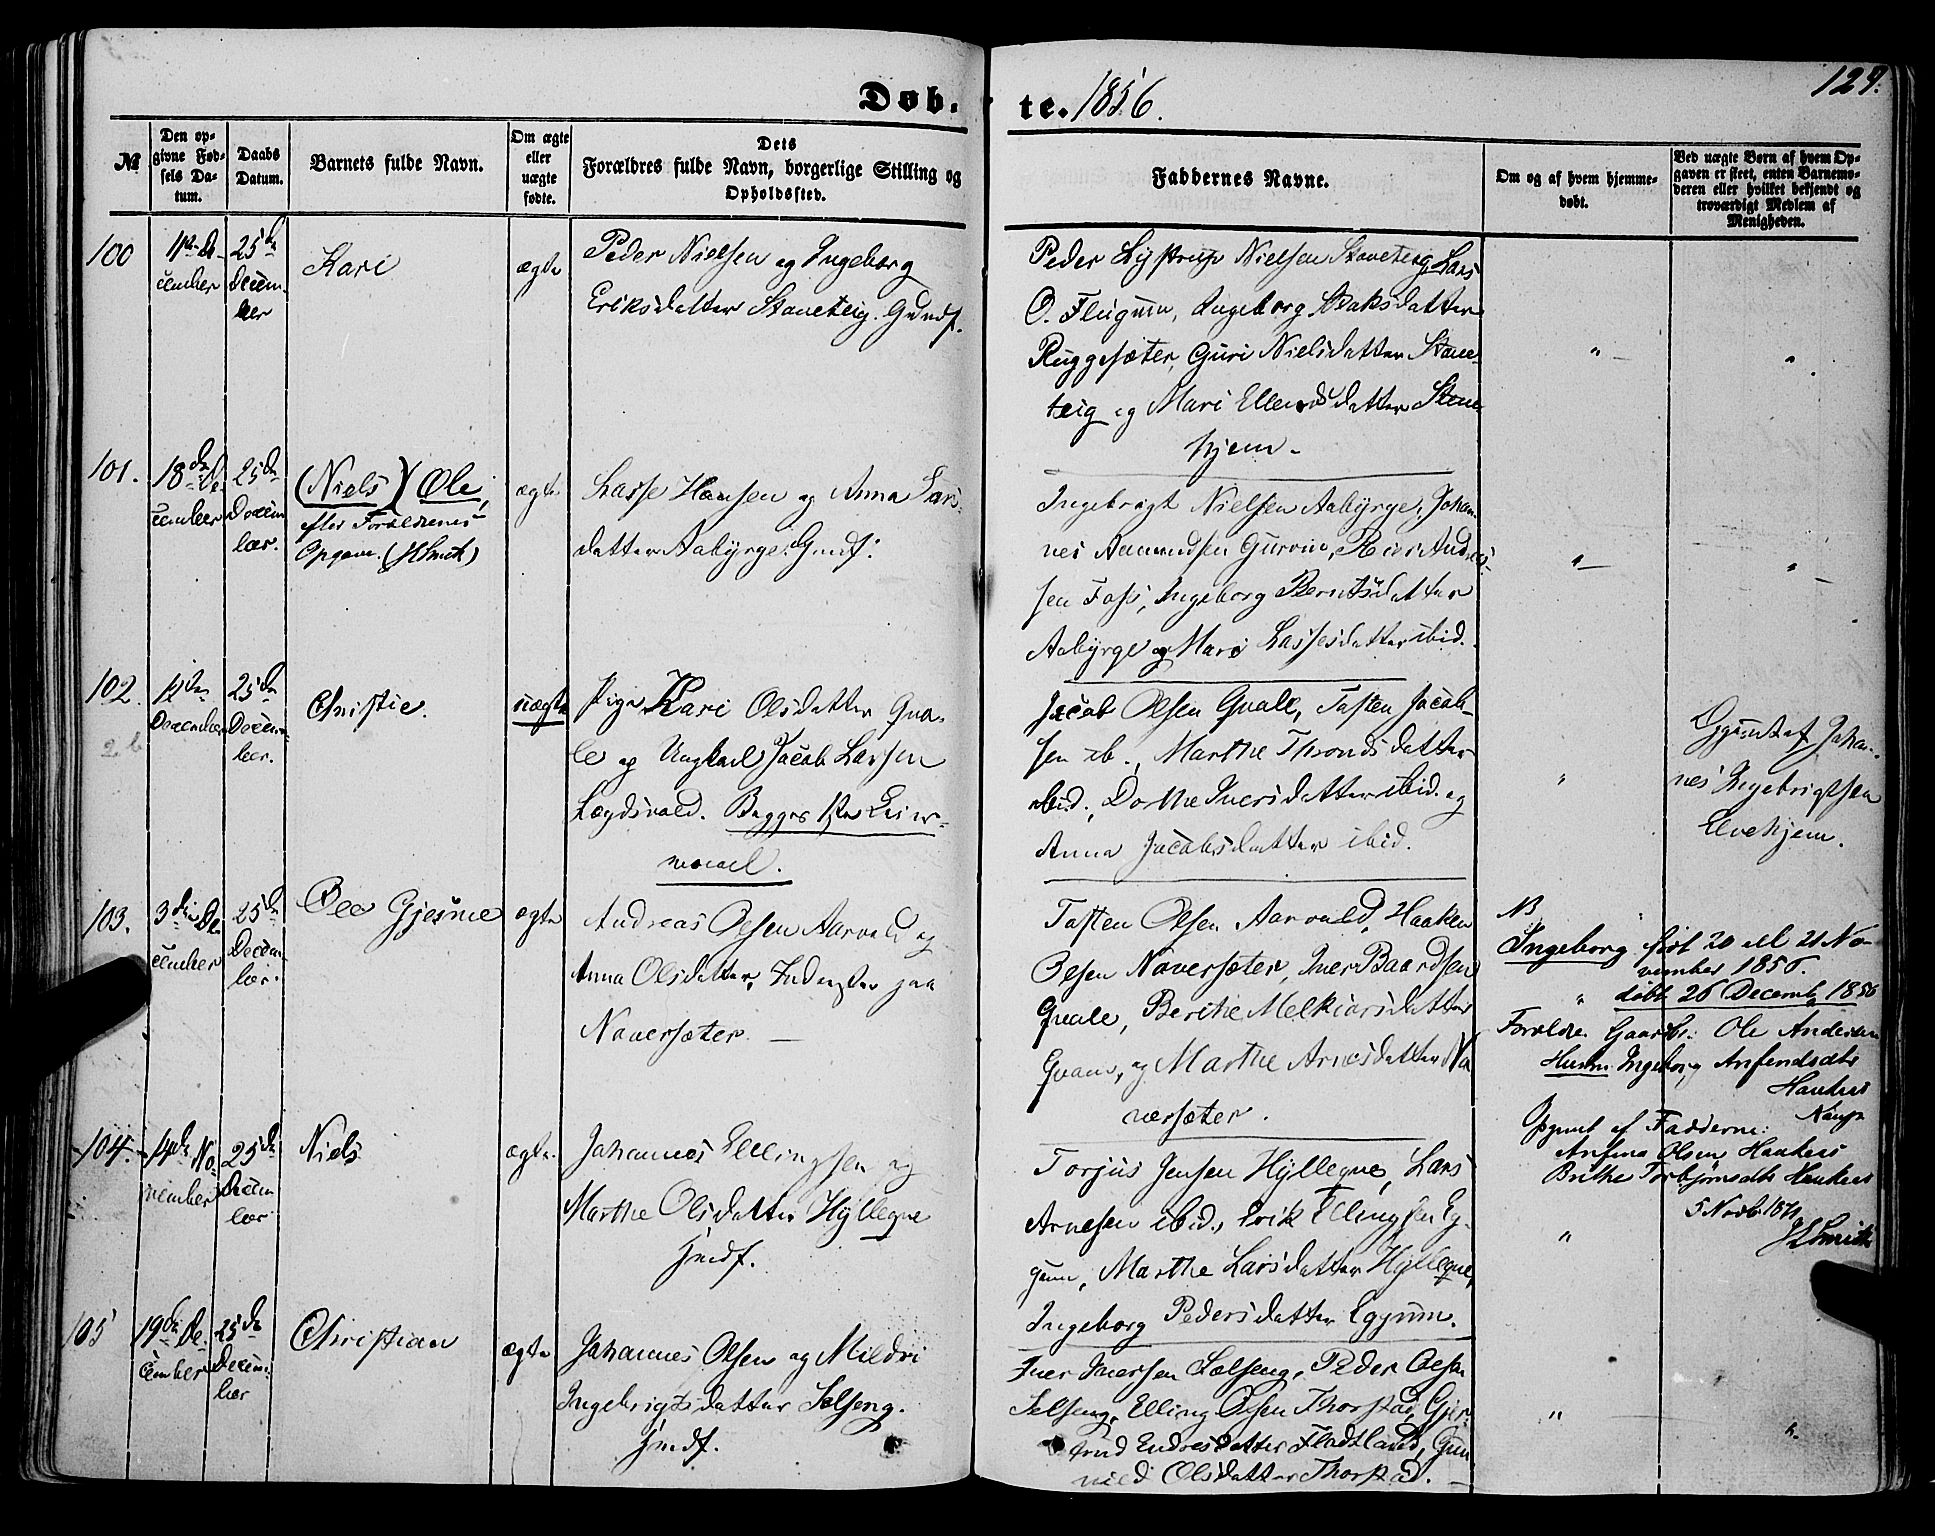 129.
Døb-te. 1856.
№
Den opgivne Fødsels Datum.
Daabs Datum.
Barnets fulde Navn.
Om ægte eller uægte fødte.
Dets Forældres fulde Navn, borgerlige Stilling og Opholdssted.
Faddernes Navne.
Om og af hvem hjemmedøbt.
Ved uægte Børn af hvem Opgaven er skeet, enten Barnemoderen eller hvilket bekjendt og troværdigt Medlem af Menigheden.
100
December
25de
Decem-
ber
Kari
ægte
Peder Nielsen og Ingeborg
Eriksdatter Skaveteig. Gmdf.
Peder Lystrup Nielsen Skaveteig, Lars
O. Flugum, Ingeborg Isaksdatter
Ruggesæter, Guri Nielsdatter Skave-
teig og Mari Ellendsdatter Stene
hjem.
101.
18de De-
cember
25de
Decem
ber.
(Niels) Ole,
efter Forældrenes
Opgave. (JSmith)
ægte
Lasse Hansen og Anna Lars-
datter Aabyrge. Gmdf.
Ingebrigt Nielsen Aabyrge, Johan-
nes Aamundsen Gurvin, Reier Andreas-
sen Foss, Ingeborg Berntsdatter
Aabyrge og Mari Lassesdatter ibid.
102.
12de
December
25de
Decem-
ber.
Christie.
uægte
Pige Kari Olsdatter Qva-
le og Ungkarl Jacob Larsen
Lægdsvold. Begges 1ste Leier-
maal.
Jacob Olsen Qvale, Tosten Jacob-
sen ib., Marthe Throndsdatter
ibid., Dorthe Iversdatter ibid. og
Anna Jacobsdatter ibid.
Opgivet af Johan-
nes Ingebrigtsen
Elvehjem.
103.
3die De
cember
25de
Decem-
ber.
Ole Gjesme
ægte
Andreas Olsen Aarvold og
Anna Olsdatter, Inderster paa
Naversæter.
Tosten Olsen Aarvold, Haaken
Olsen Naversæter, Iver Baardsen
Qvale, Berthe Melkiorsdatter
Qvam, og Marthe Arnesdatter Na
versæter.
NB
Ingeborg født 20 ell 21 No-
vember 1856.
døbt 26 Decemb 1856
Forældre Gaardbr: Ole Andersen
Hustru Ingeborg Anfindsdtr
Haukus
Opgivet af Fadderne:
Anfind Olsen Haukus
Brithe Torbjørnsdtr Haukus
5 Novb 1871
JSmith
104.
14de No-
vember
25de
Decem
ber
Niels
ægte.
Johannes Ellingsen og
Marthe Olsdatter Hyllegne
Gmdf.
Torjus Jensen Hyllegne, Lars
Arnesen ibid., Erik Ellingsen Eg-
gum, Marthe Larsdatter Hyllegne,
Ingeborg Pedersdatter Eggum.
105
19de De-
cember
25de
Decem-
ber
Christian
ægte
Johannes Olsen og Mildri
Ingebrigtsdatter Selseng.
Gmdf.
Iver Iversen Selseng, Peder Olsen
Selseng, Elling Olsen Thorstad, Gjer-
trud Endresdatter Fladtland, Gun
nild Olsdatter Thorstad.